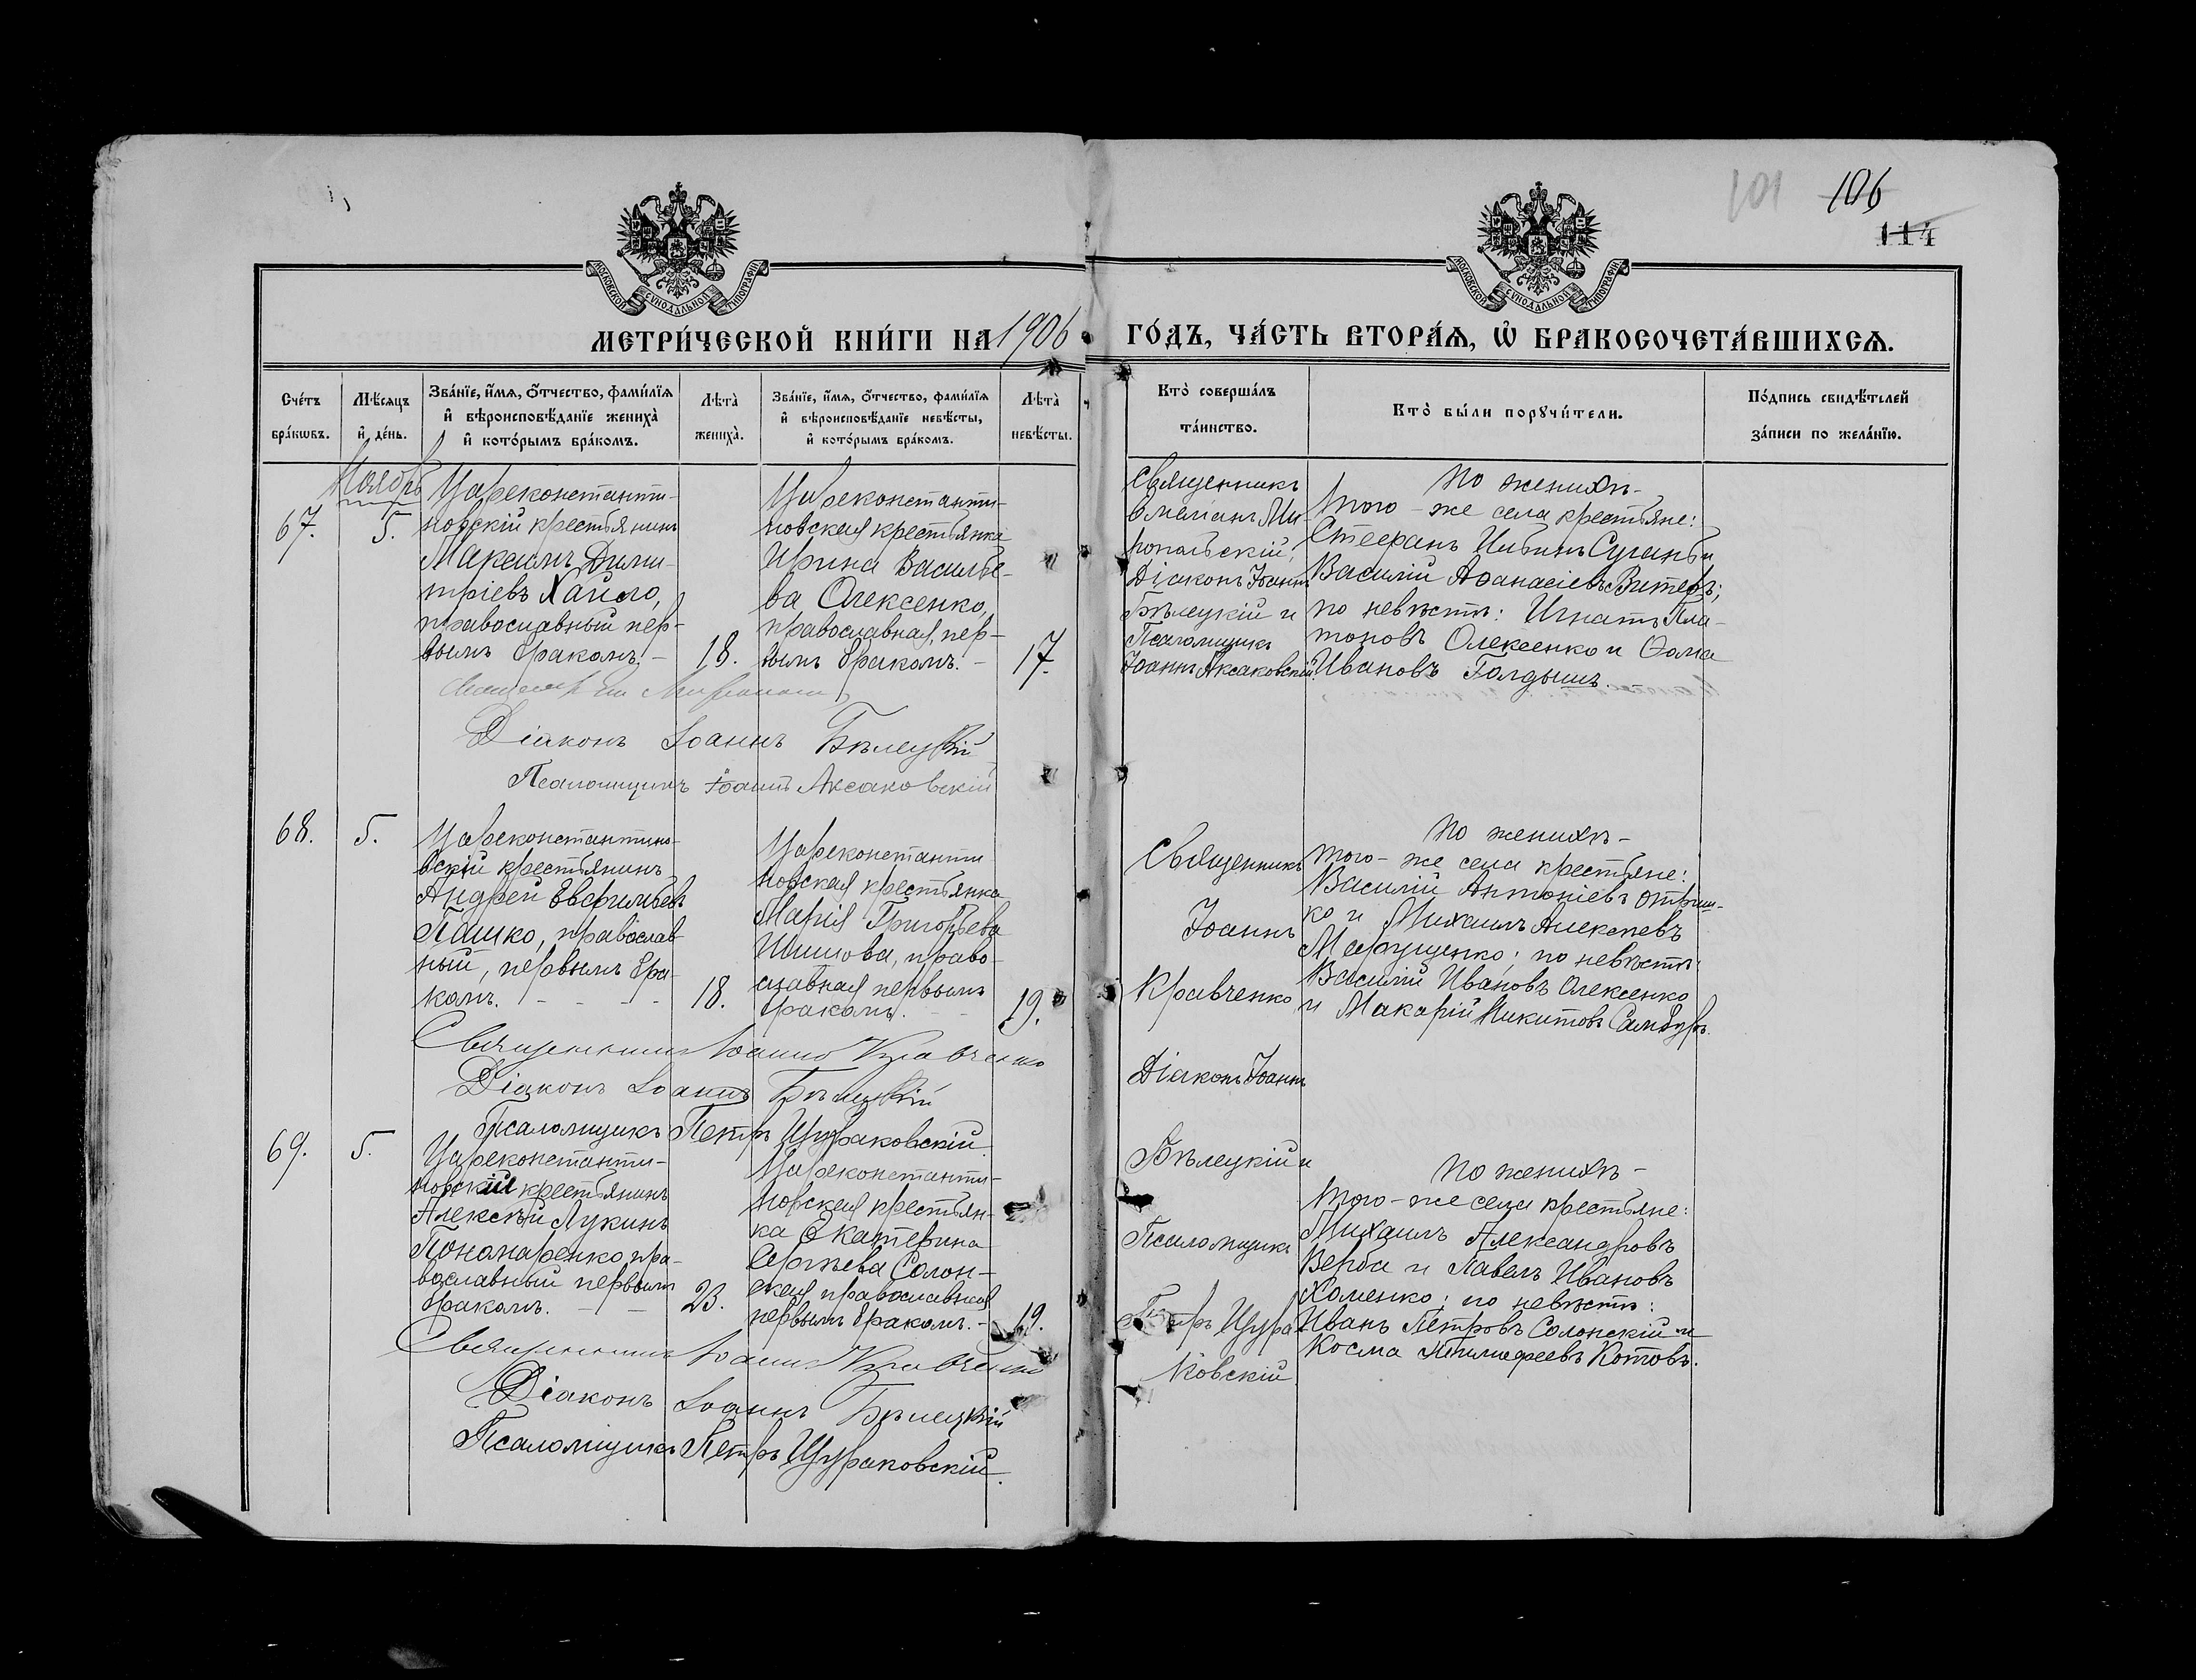 101 106
114
МОСКОВСКОЙ СѴНОДАЛЬНОЙ ТИПОГРАФІИ
МОСКОВСКОЙ СѴНОДАЛЬНОЙ ТИПОГРАФІИ
МЕТРИ́ЧЕСКОЙ КНИ́ГИ НА 1906 ГО́ДЪ, ЧА́СТЬ ВТОРА́Ѧ, Ѽ БРАКОСОЧЕТА́ВШИХСѦ.
Сче́тъ
бра́кωвъ.
Мѣ́сяцъ
и҆ де́нь.
Зва́нїе, и҆́мѧ, ѻ҆́тчество, фами́лїѧ
и҆ вѣроисповѣ́данїе жениха̀
и҆ кото́рымъ бра́комъ.
Лѣта̀
жениха̀.
Зва́нїе, и҆́мѧ, ѻ҆́тчество, фами́лїѧ
и҆ вѣроисповѣ́данїе невѣ́сты,
и҆ кото́рымъ бра́комъ.
Лѣта̀
невѣ́сты.
Кто̀ соверша́лъ
та́инство.
Кто̀ бы́ли порꙋчи́тели.
По́дпись свидѣ́телей
за́писи по жела́нїю.
Ноябрь
67.
5.
Цареконстанти-
новскій крестьянинъ
Максимъ Дими-
тріевъ Хайло,
православный пер-
вымъ бракомъ. -
18.
Цареконстанти-
новская крестьянка
Ирина Василье-
ва Олексенко,
православная, пер-
вымъ бракомъ. -
17.
Священникъ
Емеліанъ Ми-
ропольскій,
Діаконъ Іоаннъ
Бѣлецкій и
Псаломщикъ
Іоаннъ Аксаковскій.
По женихѣ -
того-же села крестьяне:
Стефанъ Ильинъ
Василій Аѳанасіевъ
по невѣстѣ: Игнатъ Пла-
тоновъ Олексенко и Ѳома
Ивановъ Голдышъ.
Діаконъ Іоаннъ Бѣлецкій
Псаломщикъ Іоаннъ Аксаковскій
68.
5.
Цареконстантино-
вскій крестьянинъ
Андрей Евфимьевъ
Пашко, православ-
ный, первымъ бра-
комъ. - - - -
18.
Цареконстанти-
новская крестьянка
Марія Григорьева
Шишова, право-
славная первымъ
бракомъ. - -
19.
Священникъ
Іоаннъ
Кравченко
Діаконъ Іоаннъ
Бѣлецкій и
Псаломщикъ
Петръ Цура
ковскій.
По женихѣ -
того-же села крестьяне:
Василій Антоніевъ Отриш-
ко и Михаилъ Алексѣевъ
Марущенко; по невѣстѣ:
Василій Ивановъ Олексенко
и Макарій Никитовъ Самбуръ.
Священникъ Іоаннъ Кравченко
Діаконъ Іоаннъ Бѣлецкій
Псаломщикъ Петръ Цураковскій.
69.
5.
Цареконстанти-
новскій крестьянинъ
Алексѣй Лукинъ
Пономаренко, пра-
вославный первымъ
бракомъ. - -
23.
Цареконстанти-
новская крестьян-
ка Екатерина
Сергѣева Солон-
ская православная
первымъ бракомъ. -
19.
По женихѣ -
того-же села крестьяне:
Михаилъ Александровъ
Верба и Павелъ Ивановъ
Хоменко; по невѣстѣ:
Иванъ Петровъ Солонскій и
Косма Тимофеевъ Котовъ.
Священникъ Іоаннъ Кравченко
Діаконъ Іоаннъ Бѣлецкій
Псаломщикъ Петръ Цураковскій.